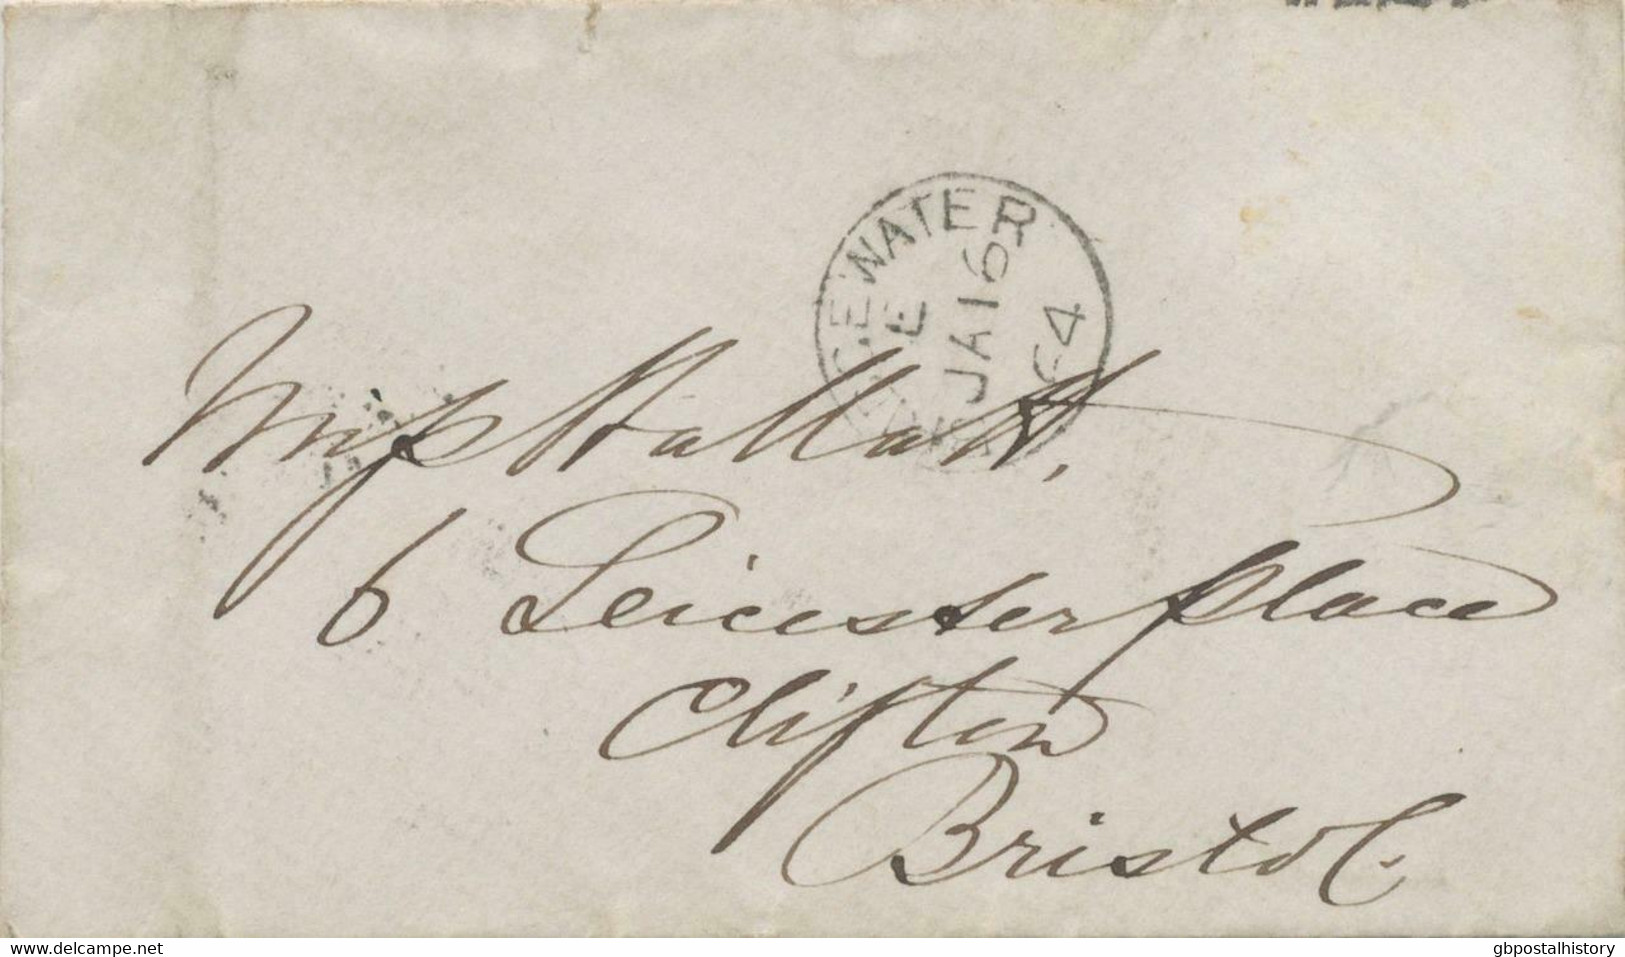 GEWATER
E
JA 16
64
Miss Hallatt,
6 Leicester place
Clifton
Bristol.
www.delcampe.net
gbpostalhistory